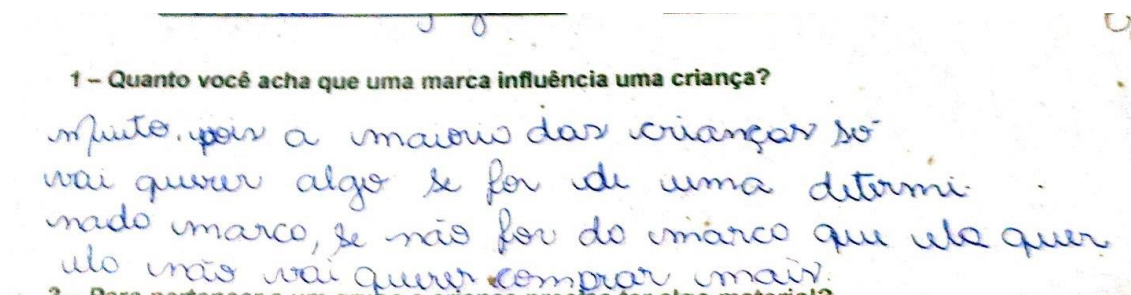 1 – Quanto você acha que uma marca influência uma criança?
Muito, pois a maioria das crianças só
vai querer algo se for de uma determi-
nada marca, se não for da marca que ela quer
ela não vai querer comprar mais.
2 – Para pertencer a um grupo a criança precisa ter algo material?